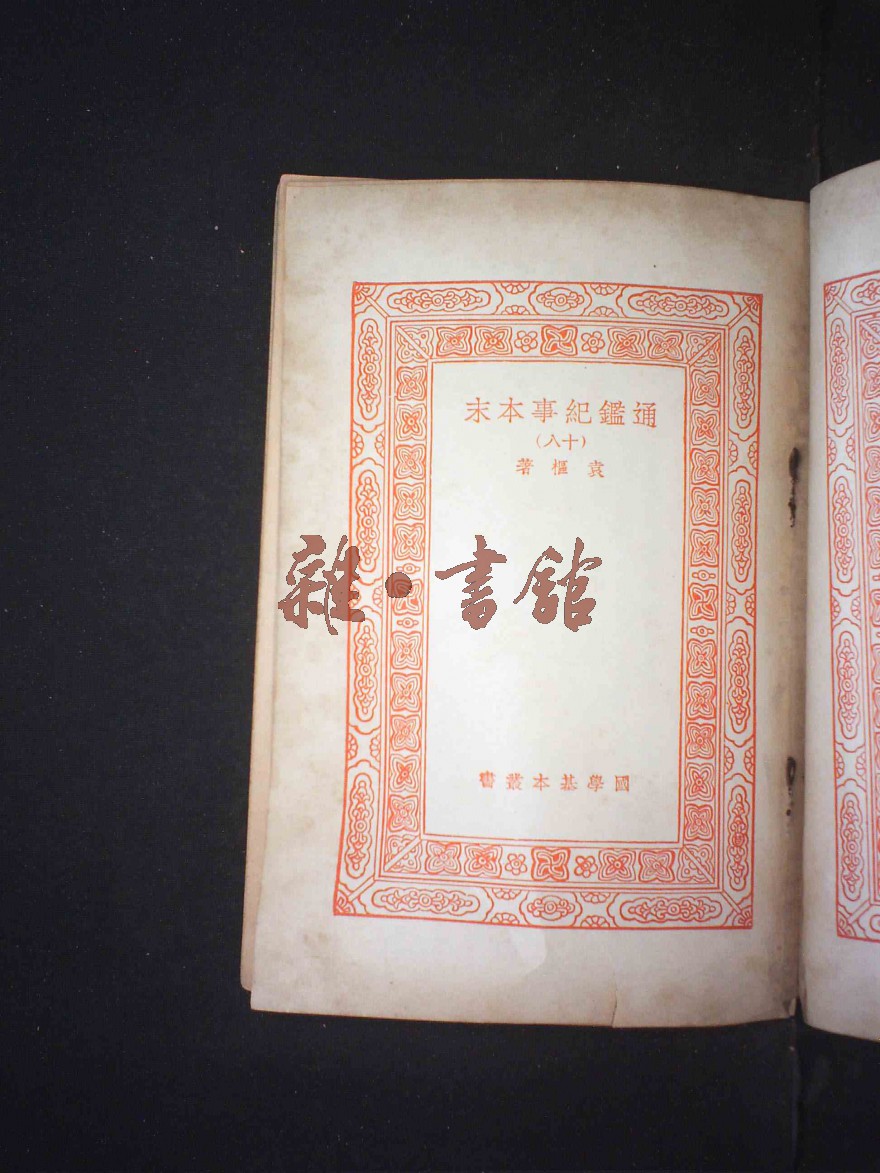 通鑑紀事本末
（十八）
袁樞著
雜·書館
國學基本叢書